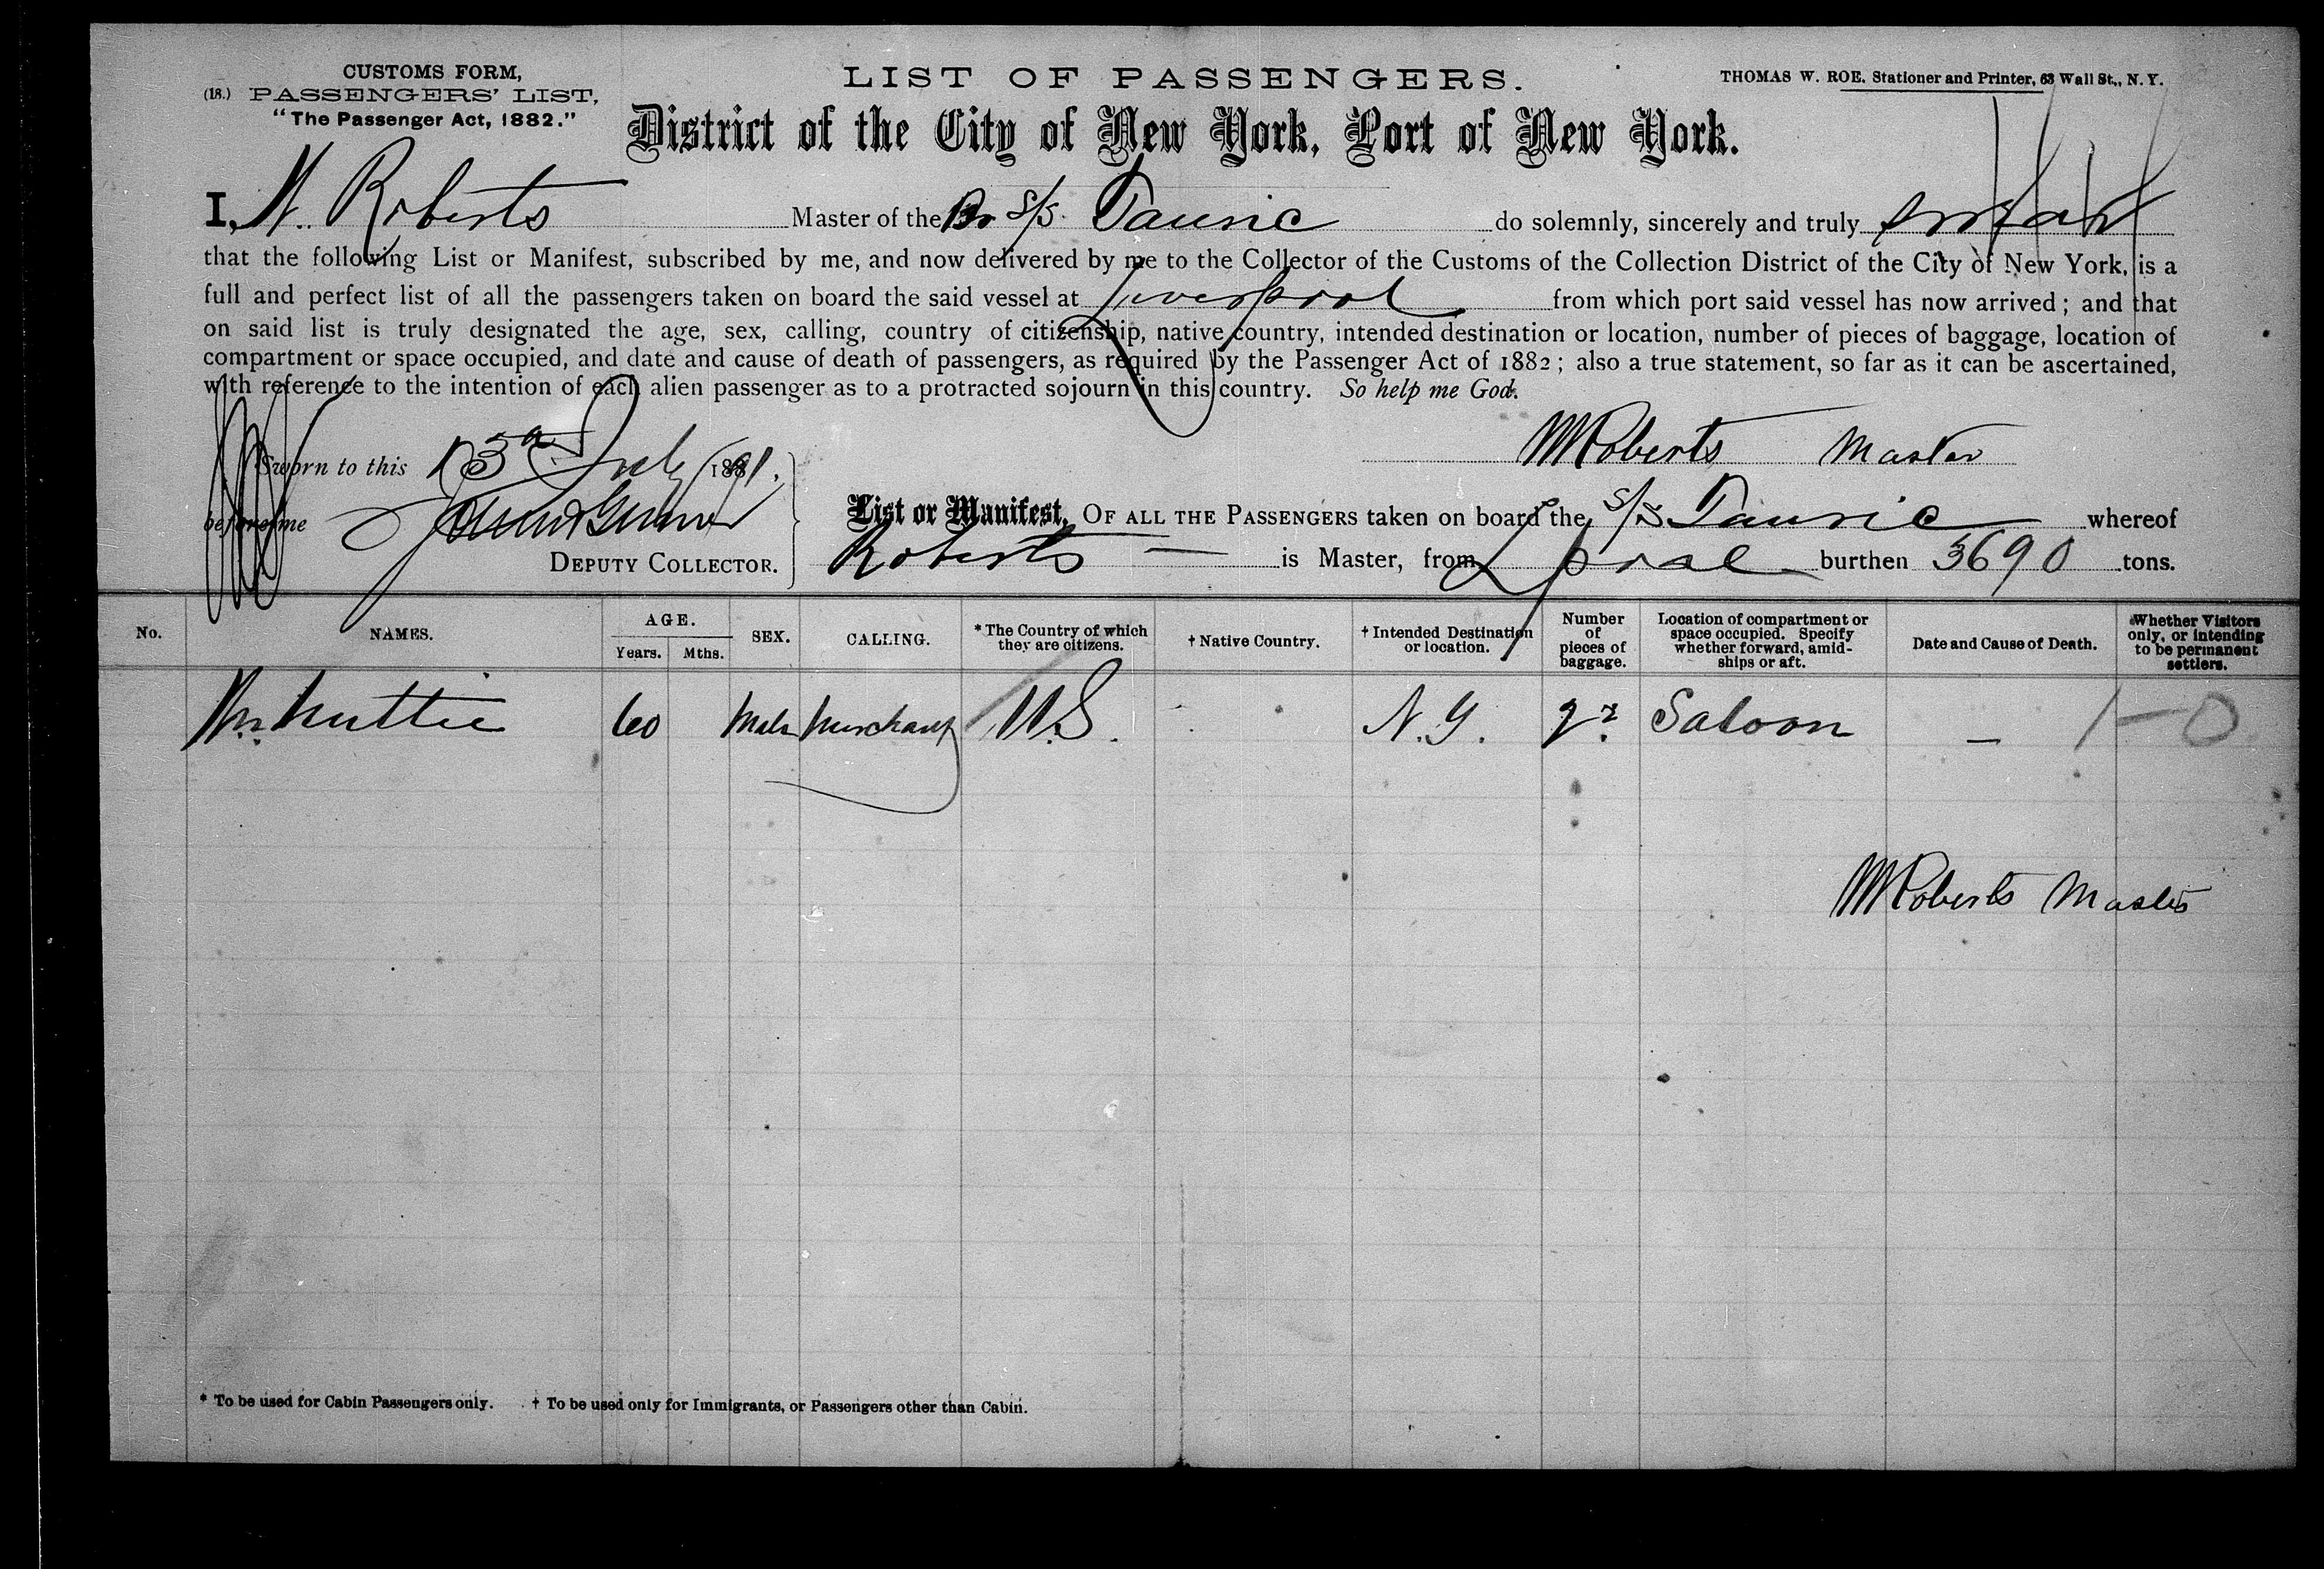 CUSTOMS FORM,
(18.) PASSENGERS' LIST,
"The Passenger Act, 1882."
LIST OF PASSENGERS.
THOMAS W. ROE. Stationer and Printer, 63 Wall St., N. Y.
District of the City of New York, Port of New York.
I, Roberts Master of the Br s/s. Tauric do solemnly, sincerely and truly
that the following List or Manifest, subscribed by me, and now delivered by me to the Collector of the Customs of the Collection District of the City of New York, is a
full and perfect list of all the passengers taken on board the said vessel at Liverpool from which port said vessel has now arrived; and that
on said list is truly designated the age, sex, calling, country of citizenship, native country, intended destination or location, number of pieces of baggage, location of
compartment or space occupied, and date and cause of death of passengers, as required by the Passenger Act of 1882; also a true statement, so far as it can be ascertained,
with reference to the intention of each alien passenger as to a protracted sojourn in this country. So help me God.
Roberts Master
Sworn to this July 1891.
before me
DEPUTY COLLECTOR.
List or Manifest, OF ALL THE PASSENGERS taken on board the s/s Tauric whereof
Roberts is Master, from Lpool burthen 3690 tons.
No. NAMES. AGE. Years. Mths. SEX. CALLING. * The Country of which they are citizens. † Native Country. † Intended Destination or location. Number of pieces of baggage. Location of compartment or space occupied. Specify whether forward, amidships or aft. Date and Cause of Death. Whether Visitors only, or intending to be permanent settlers.
60 Male Merchant U.S. N.Y. Saloon — 1-0
Roberts Master
* To be used for Cabin Passengers only. † To be used only for Immigrants, or Passengers other than Cabin.